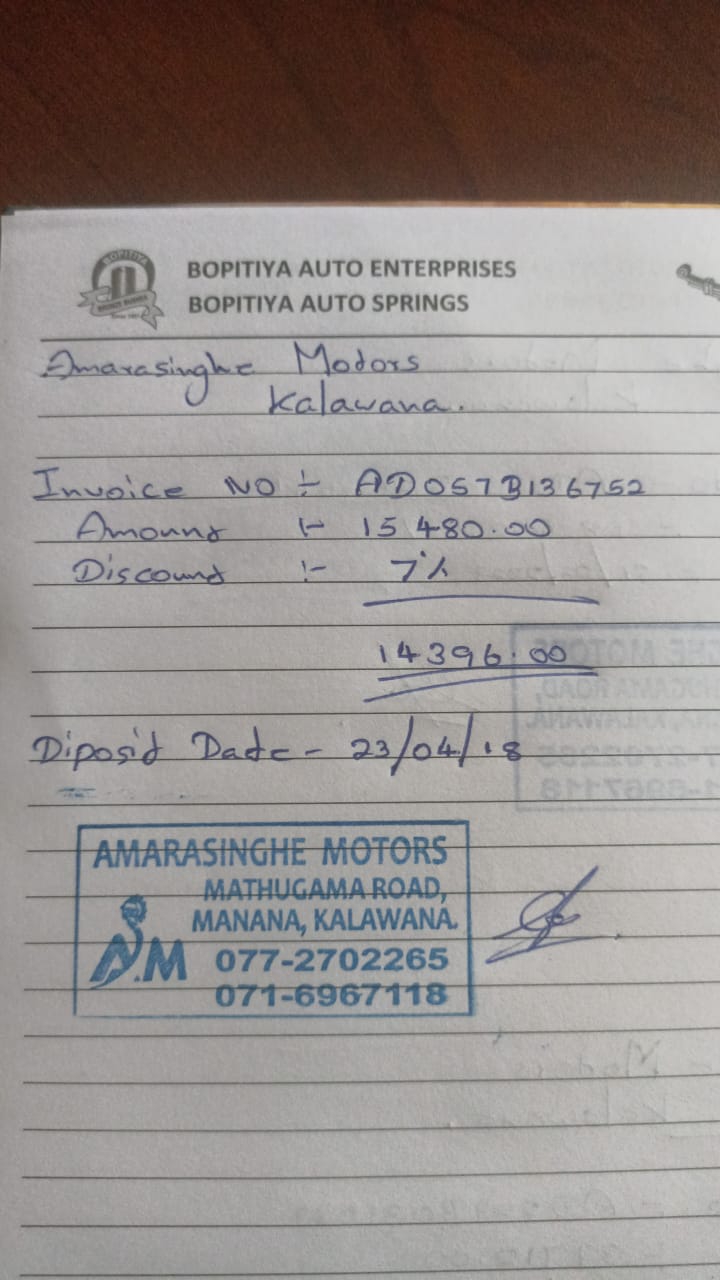 BOPITIYA
BOPITIYA AUTO ENTERPRISES
BOPITIYA AUTO SPRINGS
Amarasinghe Modors
Kalawana.
Invoice NO :- AD057B136752
Amound :- 15 480.00
Discound :- 7%
14396.00
Diposid Date - 23/04/18
AMARASINGHE MOTORS
MATHUGAMA ROAD,
MANANA, KALAWANA.
A.M 077-2702265
071-6967118